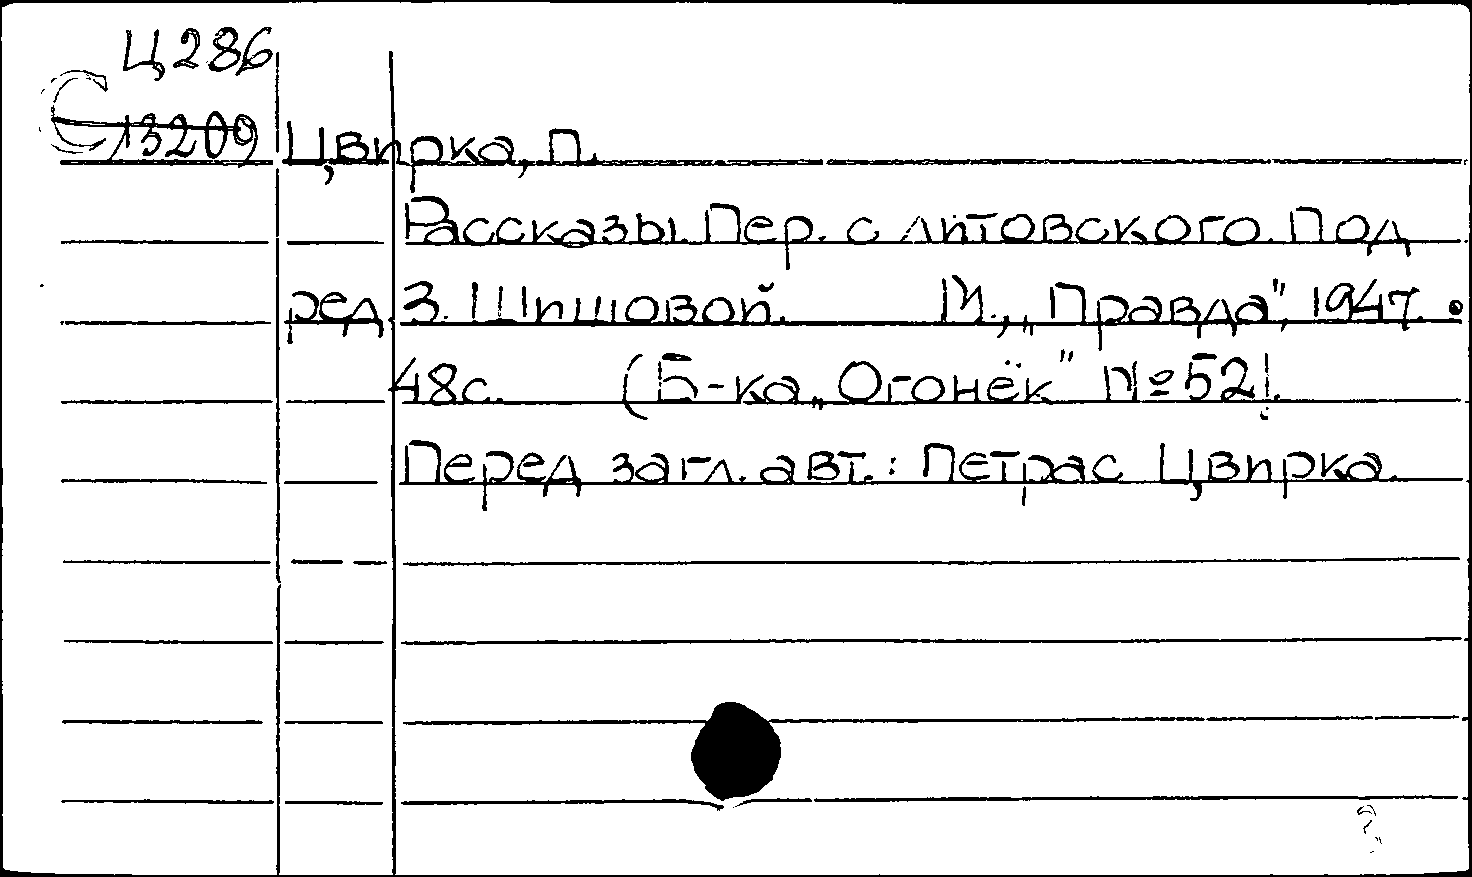 Ц286
С 13209
Цвирка, П.
Рассказы. Пер. с литовского. Под
ред. З. Шишовой. М., „Правда", 1947.
48с. (Б-ка „Огонёк" № 52).
Перед загл. авт.: Петрас Цвирка.